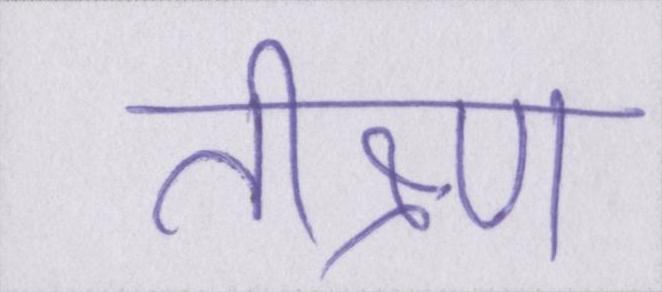 तीक्ष्ण